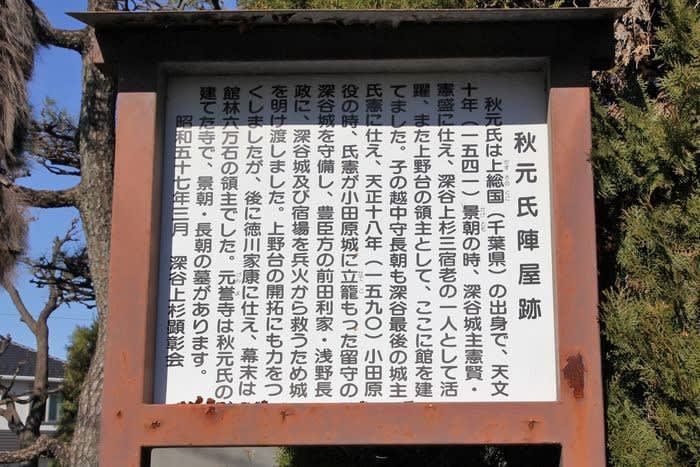 秋元氏陣屋跡
秋元氏は上総国（千葉県）の出身で、天文
十年（一五四一）景朝の時、深谷城主憲賢・
憲盛に仕え、深谷上杉三宿老の一人として活
躍、また上野台の領主として、ここに館を建
てました。子の越中守長朝も深谷最後の城主
氏憲に仕え、天正十八年（一五九〇）小田原
役の時、氏憲が小田原城に立籠もった留守の
深谷城を守備し、豊臣方の前田利家・浅野長
政に、深谷城及び宿場を兵火から救うため城
を明け渡しました。上野台の開拓にも力をつ
くしましたが、後に徳川家康に仕え、幕末は
館林六万石の領主でした。元誉寺は秋元氏の
建てた寺で、景朝・長朝の墓があります。
昭和五十七年三月　深谷上杉顕彰会